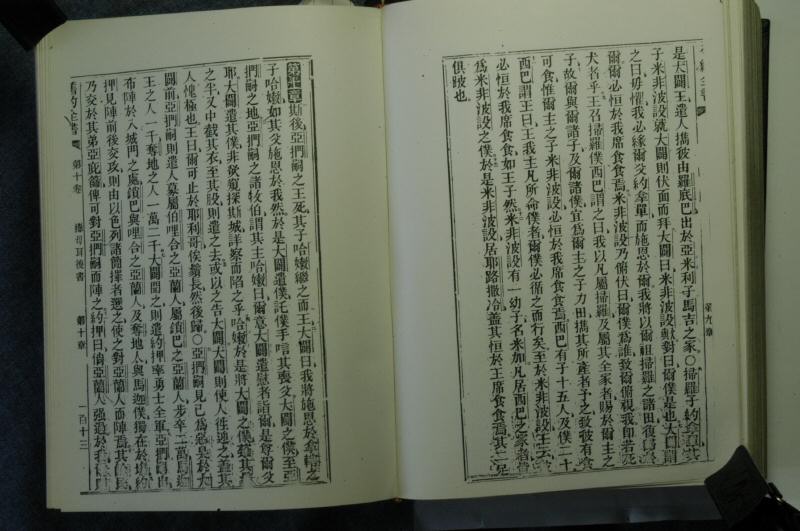 是大闢王遣人攜彼由羅底巴出於亞米利子馬吉之家〇掃羅子約拿單其
子米非波設就大闢則伏面而拜大闢曰米非波設歟對曰爾僕是也大闢謂
之曰毋懼我必緣爾父約拿單而施恩於爾我將以爾祖掃羅之諸田復爲
爾爾必恒於我席食食焉米非波設乃俯伏曰爾僕爲誰致爾俯視我卽若死
犬者乎王召掃羅僕西巴謂之曰我以凡屬掃羅及屬其全家者賜於爾主之
子故爾與爾諸子及爾諸僕宜爲爾主之子力田攜其所產者子之致彼有食
可食惟爾主之子米非波設必恒於我席食食焉西巴有子十五人及僕二十
西巴謂王曰王我主凡所命僕者爾僕必循之而行矣至於米非波設王云
必恒於我席食食如王子然米非波設有一幼子名米加凡居西巴之家者皆
爲米非波設之僕於是米非波設居耶路撒冷蓋其恒於王席食食焉其二足
俱跛也
第九章
第十章斯後亞捫嗣之王死其子哈嫩繼之而王大闢曰我將施恩於拿轄之
子哈嫩如其父施恩於我然於是大闢遣僕託僕手唁其喪父大闢之僕至亞
捫嗣之地亞捫嗣之諸牧伯謂其主哈嫩曰爾意大闢遣慰者詣爾是尊爾父
耶大闢遣其僕非欲窺探斯城詳察而陷之乎哈嫩於是將大闢之僕薙其鬚
之半又中截其衣至其股則遣之去或以之告大闢大闢則使人往迎之蓋其
人愧極也王曰爾可止於耶利哥俟鬚長然後歸〇亞捫嗣見己爲惡是於大
闢前亞捫嗣則遣人募屬伯哩合之亞蘭人屬鎖巴之亞蘭人步卒二萬馬迦
王之人一千奪地之人一萬二千大闢聞之則遣約押率勇士全軍亞捫嗣出
布陣於入城門之處鎖巴與哩合之亞蘭人及奪地人與馬迦僕獨在於埸約
押見陣前後交攻則由以色列諸簡擇者選之使之對亞蘭人而陣焉其餘民
乃交於其弟亞庇篩俾可對亞捫嗣而陣之約押曰倘亞蘭人强過於我
舊約全書 第十卷 撒母耳後書 第十章 一百十三